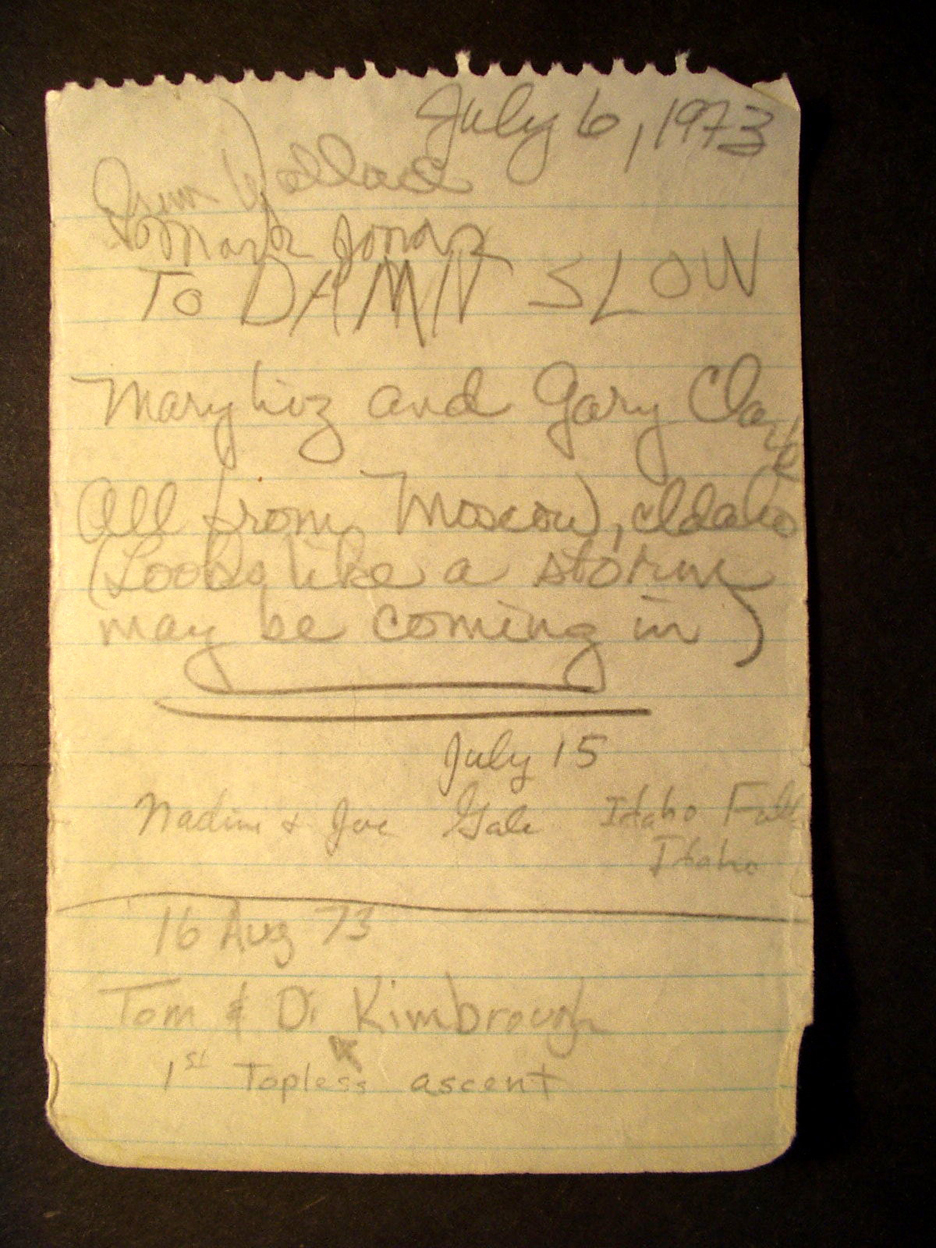 July 6, 1973
Wallace
Mark Jonas
TO DAMN SLOW
Mary Liz and Gary Clark
All from Moscow, Idaho
(Looks like a storm
may be coming in)
July 15
Nadine & Joe Gale Idaho Falls
Idaho
16 Aug 73
Tom & Di Kimbrough
1st Topless ascent